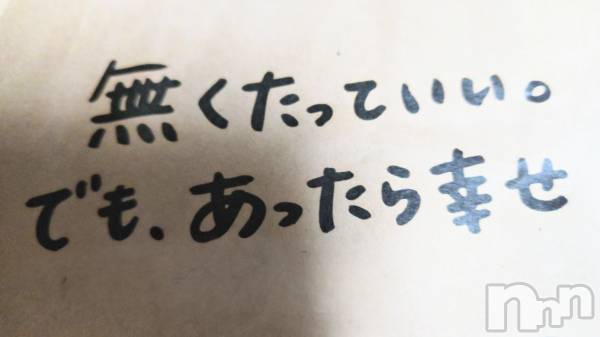 無くたっていい。
でも、あったら幸せ